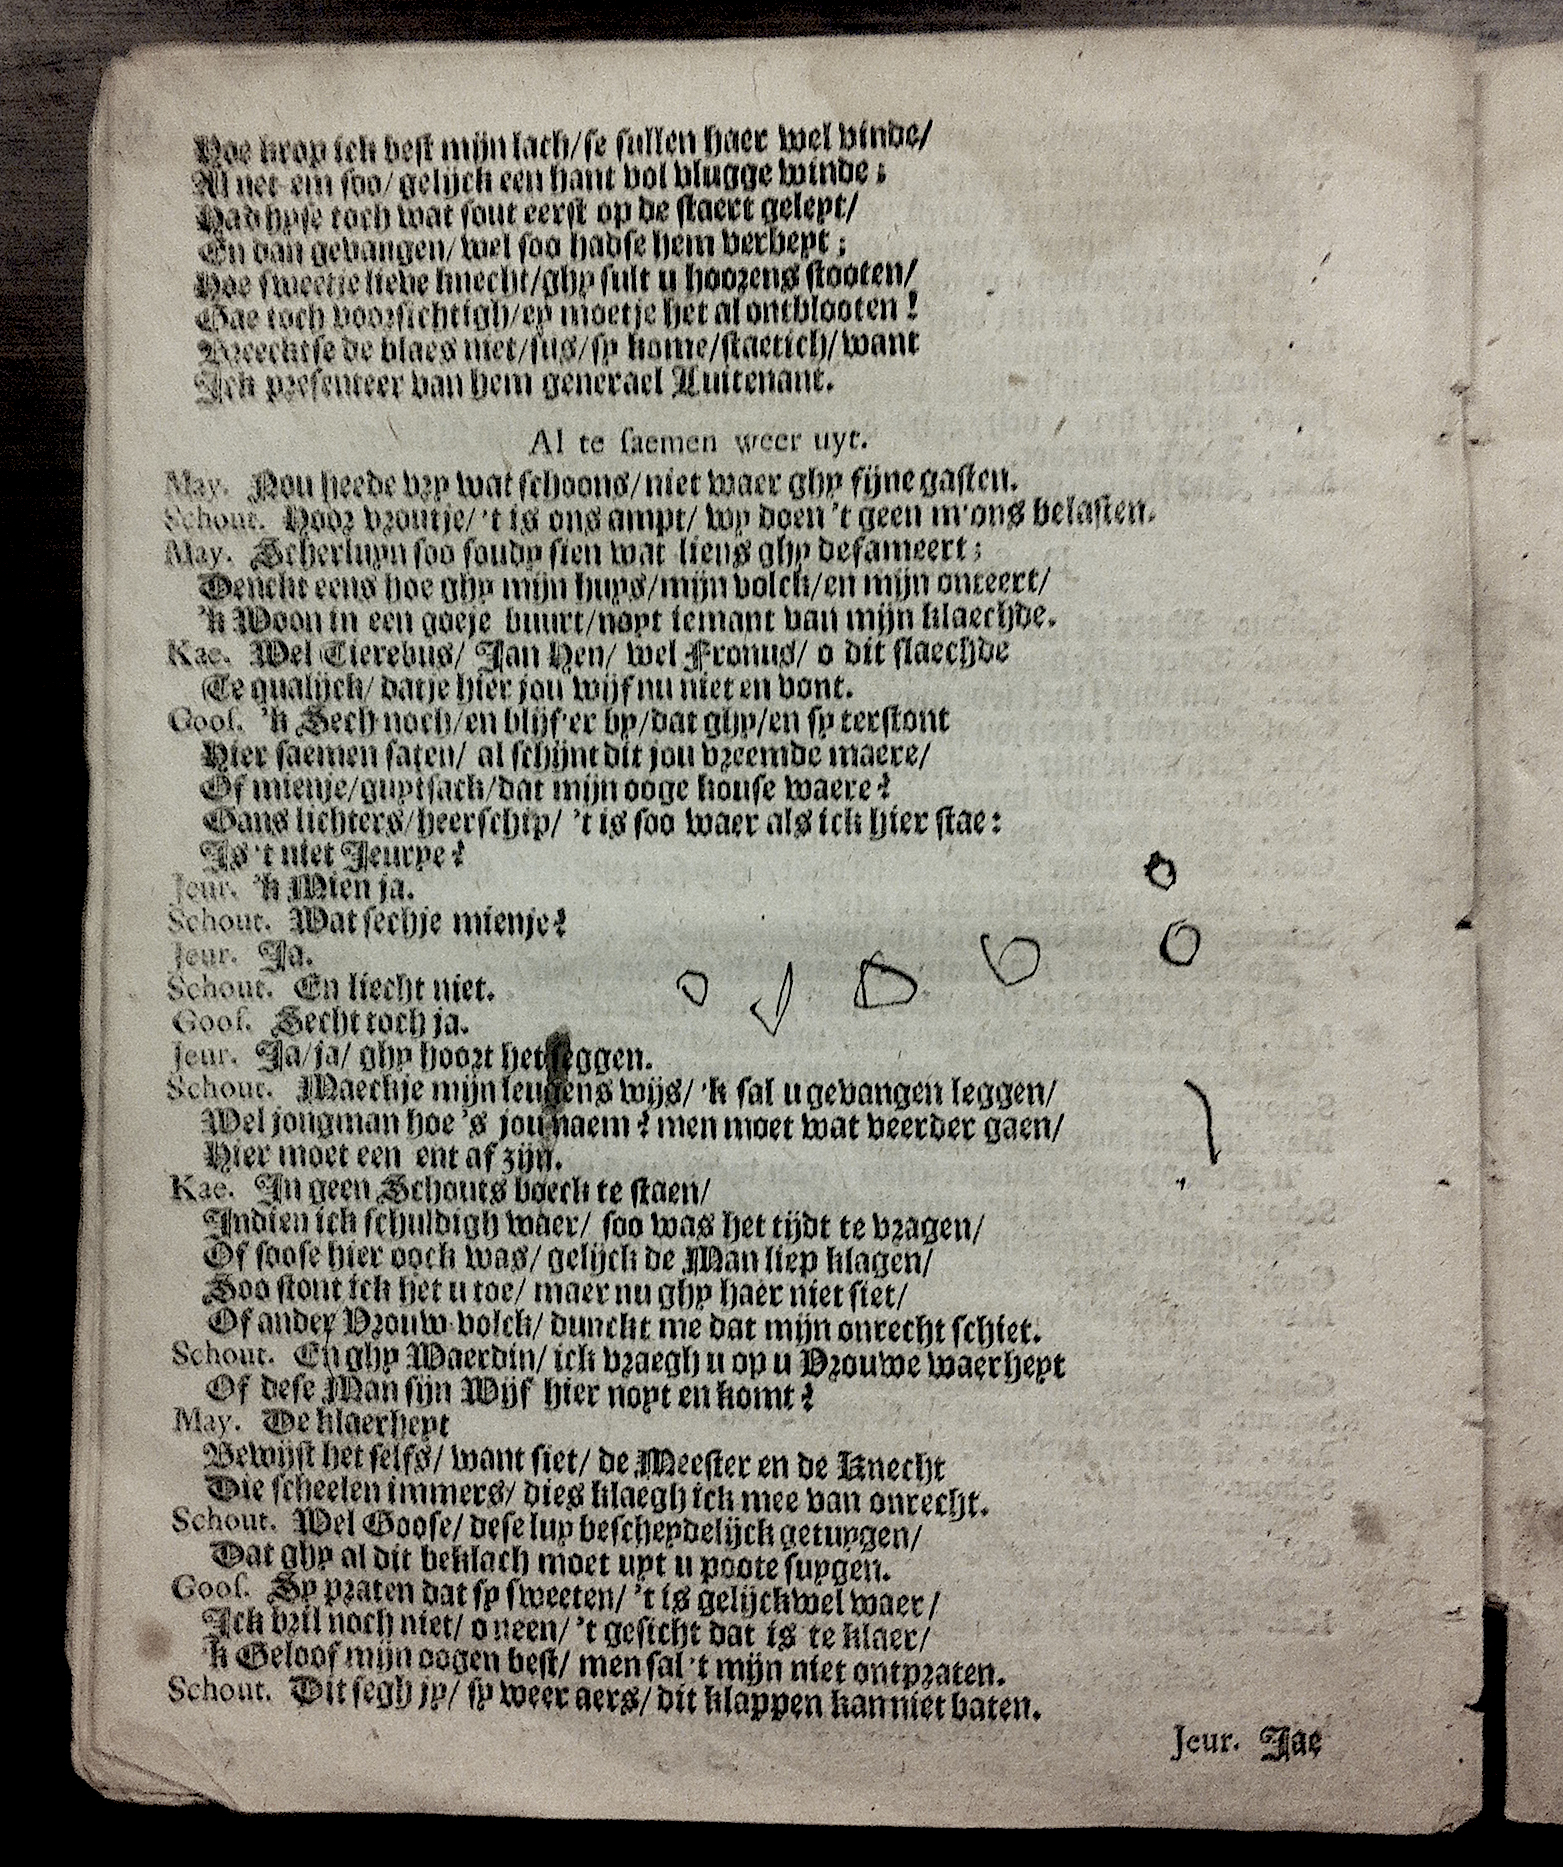 Hoe krop ick best mijn lach/se sullen haer wel vinde/
Al net-ein soo/gelijck een hant vol vlugge winde;
Had hyse toch wat sout eerst op de staert geleyt/
En dan gevangen/wel soo hadse hem verbeyt;
Hoe sweetje lieve knecht/ghy sult u hoozens stooten/
Gae toch voorsichtigh/ey moetje het al ontblooten!
Breecktse de blaes niet/sus/sy kome/staetich/want
Ick presenteer van hem generael Luitenant.
Al te saemen weer uyt.
May. Nou heede vry wat schoons/niet waer ghy fijne gasten.
Schout. Hoor vroutje/'t is ons ampt/ wy doen 't geen m'ons belasten.
May. Scherluyn soo soudy sien wat liens ghy defameert;
Denckt eens hoe ghy mijn huys/mijn volck/en mijn onteert/
'k Woon in een goeje buurt/noyt iemant van mijn klaechde.
Kae. Wel Tierebus/ Jan Hen/ wel Fronus/ o dit slaechde
Te qualijck/datje hier jou wijf nu niet en vont.
Goos. 'k Sech noch/en blijf 'er by/dat ghy/en sy terstont
Hier saemen saten/ al schijnt dit jou vreemde maere/
Of mienje/guytsack/dat mijn ooge kouse waere?
Gans lichters/heerschip/ 't is soo waer als ick hier stae:
Is 't niet Jeurye?
Jeur. 'k Mien ja.
Schout. Wat sechje mienje?
Jeur. Ja.
Schout. En liecht niet.
Goos. Secht toch ja.
Jeur. Ja/ja/ ghy hoort het seggen.
Schout. Maeckje mijn leugens wijs/ 'k sal u gevangen leggen/
Wel jongman hoe 's jou naem? men moet wat veerder gaen/
Hier moet een ent af zijn.
Kae. In geen Schouts boeck te staen/
Indien ick schuldigh waer/ soo was het tijdt te vragen/
Of soose hier oock was/ gelijck de Man liep klagen/
Soo stont ick het u toe/ maer nu ghy haer niet siet/
Of ander Vrouw-volck/ dunckt me dat mijn onrecht schiet.
Schout. En ghy Waerdin/ ick vraegh u op u Vrouwe waerheyt
Of dese Man sijn Wijf hier noyt en komt?
May. De klaerheyt
Bewijst het selfs/ want siet/ de Meester en de Knecht
Die scheelen immers/ dies klaegh ick mee van onrecht.
Schout. Wel Goose/ dese luy bescheydelijck getuygen/
Dat ghy al dit beklach moet uyt u poote suygen.
Goos. Sy praten dat sy sweeten/ 't is gelijckwel waer/
Ick bril noch niet/ o neen/ 't gesicht dat is te klaer/
'k Geloof mijn oogen best/ men sal 't mijn niet ontpraten.
Schout. Dit segh jy/ sy weer aers/ dit klappen kan niet baten.
Jeur. Jae